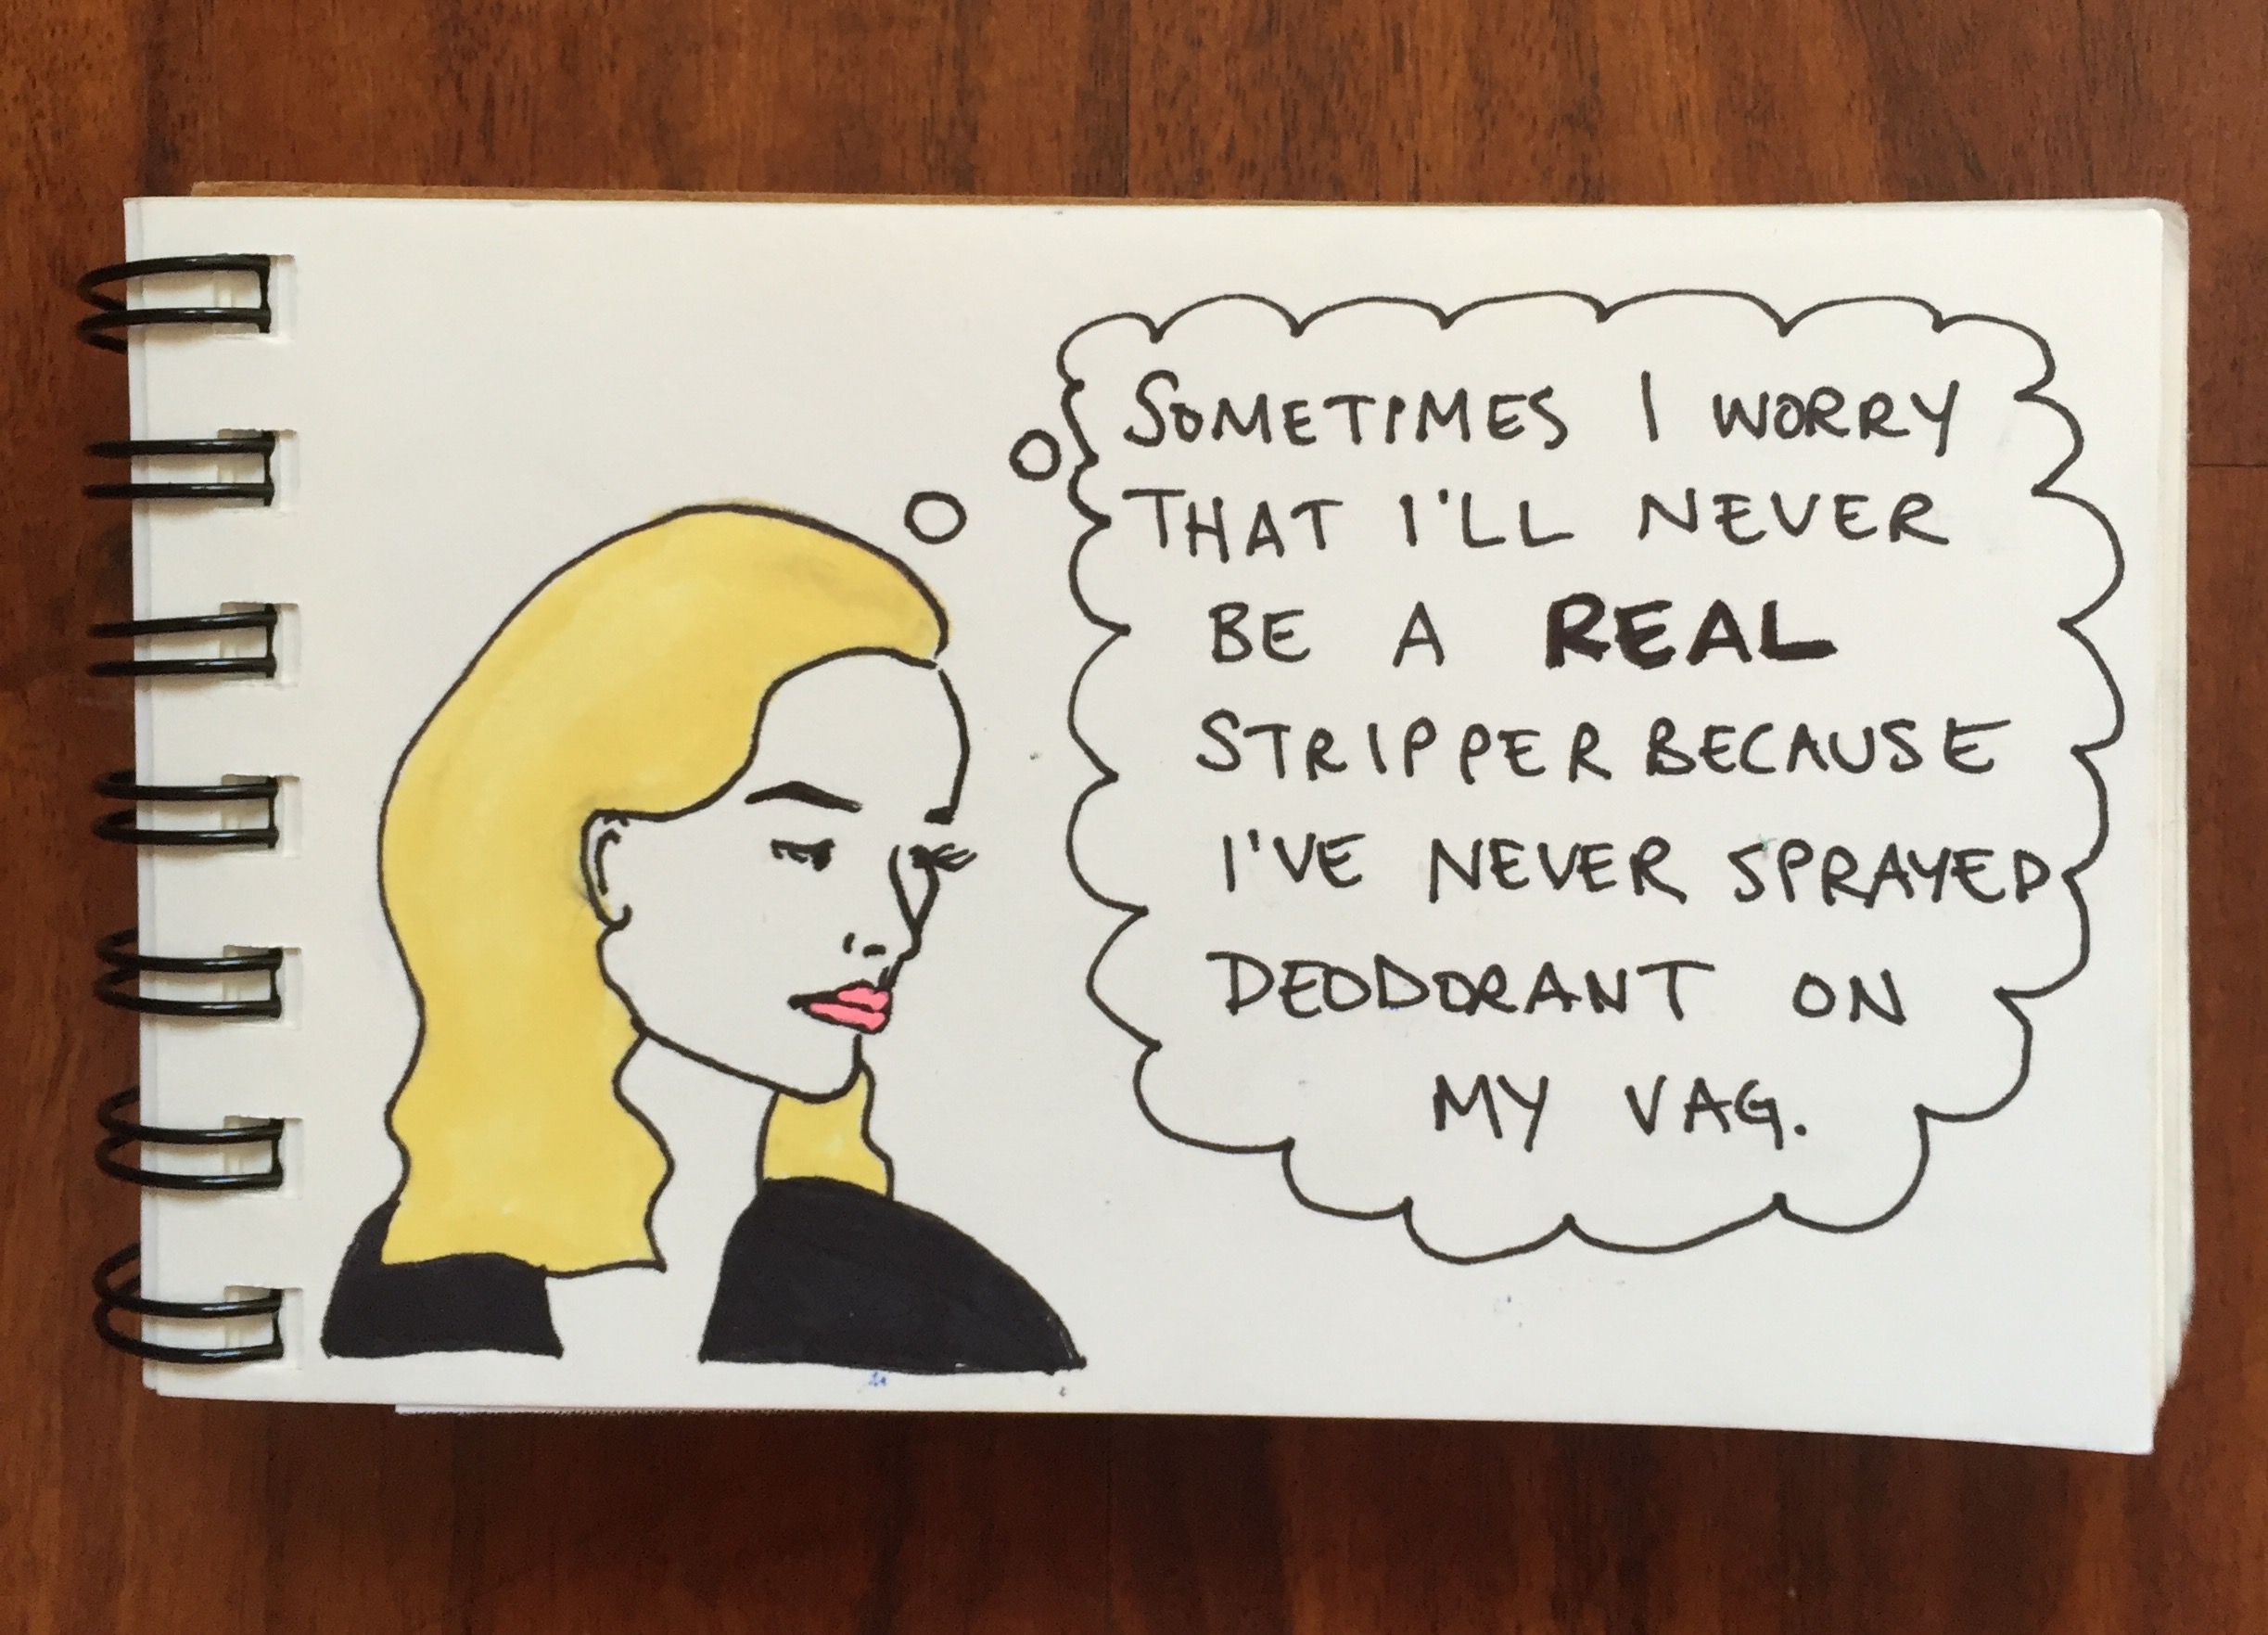 SOMETIMES I WORRY
THAT I'LL NEVER
BE A REAL
STRIPPER BECAUSE
I'VE NEVER SPRAYED
DEODORANT ON
MY VAG.